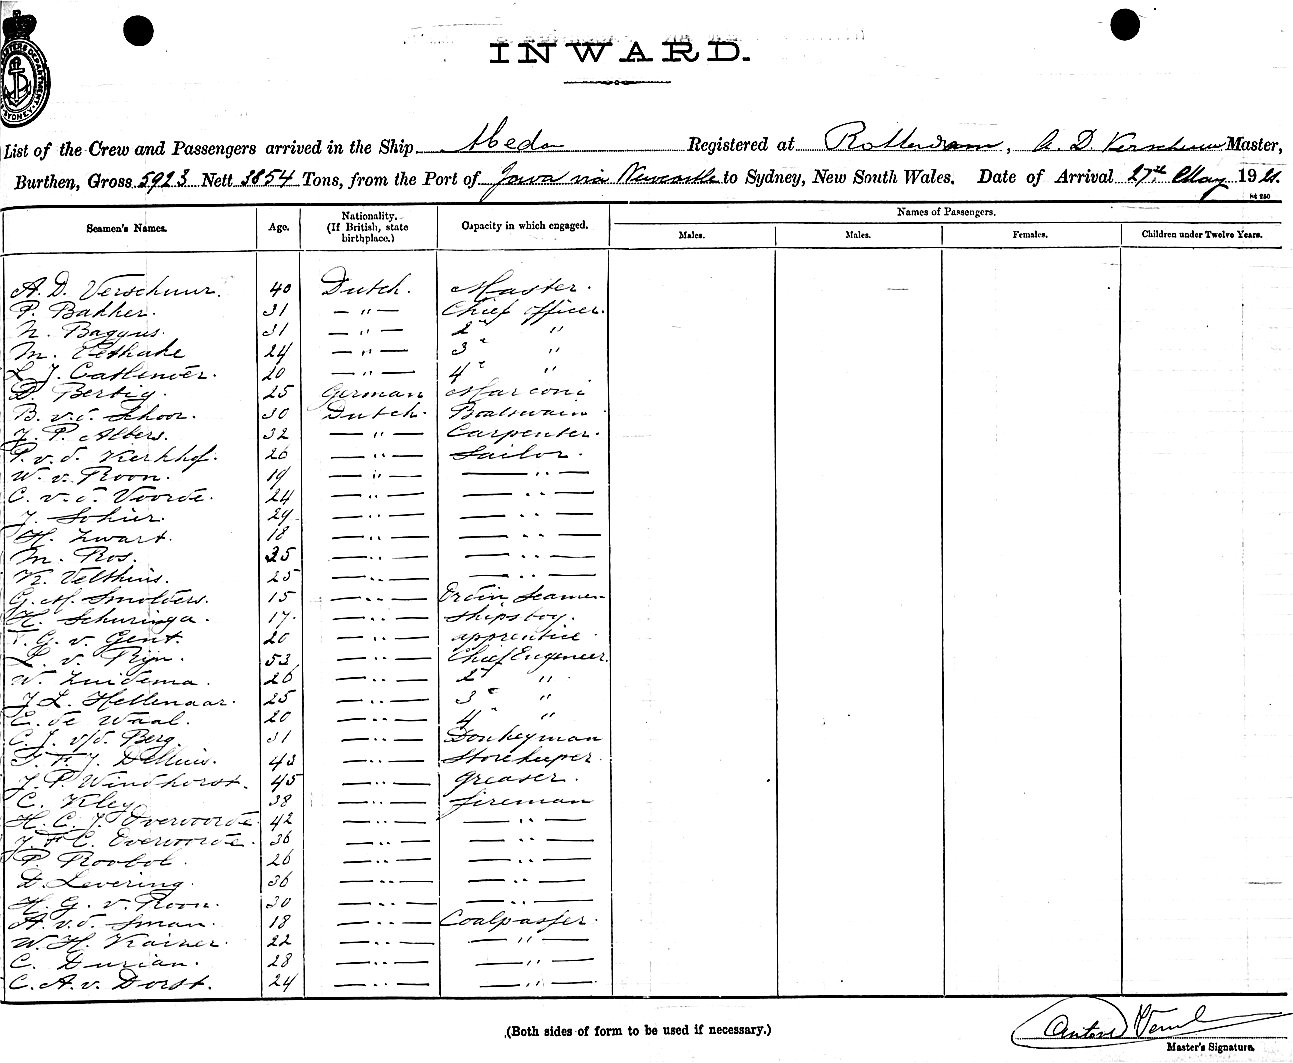 INWARD.
List of the Crew and Passengers arrived in the Ship Registered at Rotterdam, A. D. Verschuur Master,
Burthen, Gross 5923 Nett 3854 Tons, from the Port of Java via Newcastle to Sydney, New South Wales. Date of Arrival 27th May 1921.
Seamen's Names. Age. Nationality. (If British, state birthplace.) Capacity in which engaged. Names of Passengers.
Males. Males. Females. Children under Twelve Years.
A. D. Verschuur. 40 Dutch. Master.
P. Bakker. 31 — " — Chief officer.
N. Bagyus. 31 — " — 2d "
M. 24 — " — 3d "
L. J. 20 — " — 4d "
D. Bertig. 25 German Marconi
B. v.d. Schoor. 30 Dutch. Boatswain
J. P. Albers. 32 — " — Carpenter.
P. v. d. Kerkhof. 26 — " — Sailor.
W. v. Roon. 19 — " — — " —
C. v. d. Voorde. 24 — " — — " —
J. Sohier. 29 — " — — " —
H. Zwart. 18 — " — — " —
M. Ros. 35 — " — — " —
K. Velthuis. 25 — " — — " —
G. M. Smolders. 15 — " — Ordin Seamen
H. Schuringa. 17. — " — Shipsboy.
T. G. v. Gent. 20 — " — apprentice.
L. v. Rijn. 53 — " — Chief Engeneer.
W. Zuidema. 26 — " — 2d "
J. L. Hellenaar. 25 — " — 3d "
C. de Waal. 20 — " — 4d "
C. J. v/d. Berg. 31 — " — Donkeyman
F. F. J. 43 — " — Storekeeper
J. P. Windhorst. 45 — " — greaser.
C. Kley 38 — " — fireman
H. C. J. Overvoorde 42 — " — — " —
J. F. C. Overvoorde. 36 — " — — " —
P. Roobol. 26 — " — — " —
D. Levering. 36 — " — — " —
H. G. v. Roon. 30 — " — — " —
A. v.d. Sman. 18 — " — Coalpasser.
W. H. Kaizer. 22 — " — — " —
C. Durian. 28 — " — — " —
C. A. v. Dorst. 24 — " — — " —
(Both sides of form to be used if necessary.)
Master's Signature.